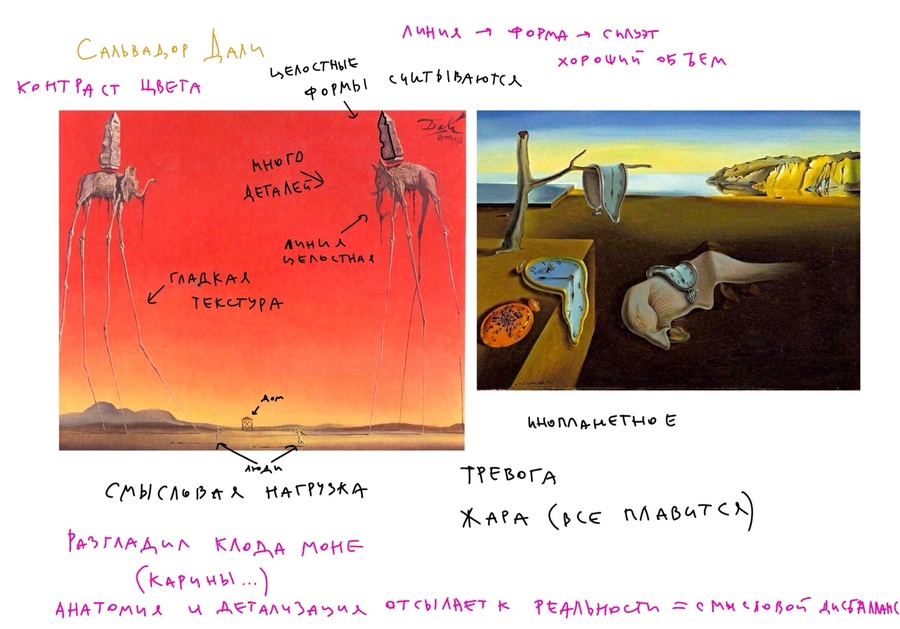 Сальвадор Дали
КОНТРАСТ ЦВЕТА
ЛИНИЯ → ФОРМА → СИЛУЭТ
ХОРОШИЙ ОБЪЕМ
ЦЕЛОСТНЫЕ
ФОРМЫ СЧИТЫВАЮТСЯ
МНОГО
ДЕТАЛЕЙ
ЛИНИЯ
ЦЕЛОСТНАЯ
ГЛАДКАЯ
ТЕКСТУРА
ДОМ
ЛЮДИ
СМЫСЛОВАЯ НАГРУЗКА
ИНОПЛАНЕТНОЕ
ТРЕВОГА
ЖАРА (ВСЕ ПЛАВИТСЯ)
РАЗГЛАДИЛ КЛОДА МОНЕ
(КАРИНЫ...)
АНАТОМИЯ И ДЕТАЛИЗАЦИЯ ОТСЫЛАЕТ К РЕАЛЬНОСТИ = СМЫСЛОВОЙ ДИСБАЛЛАНС